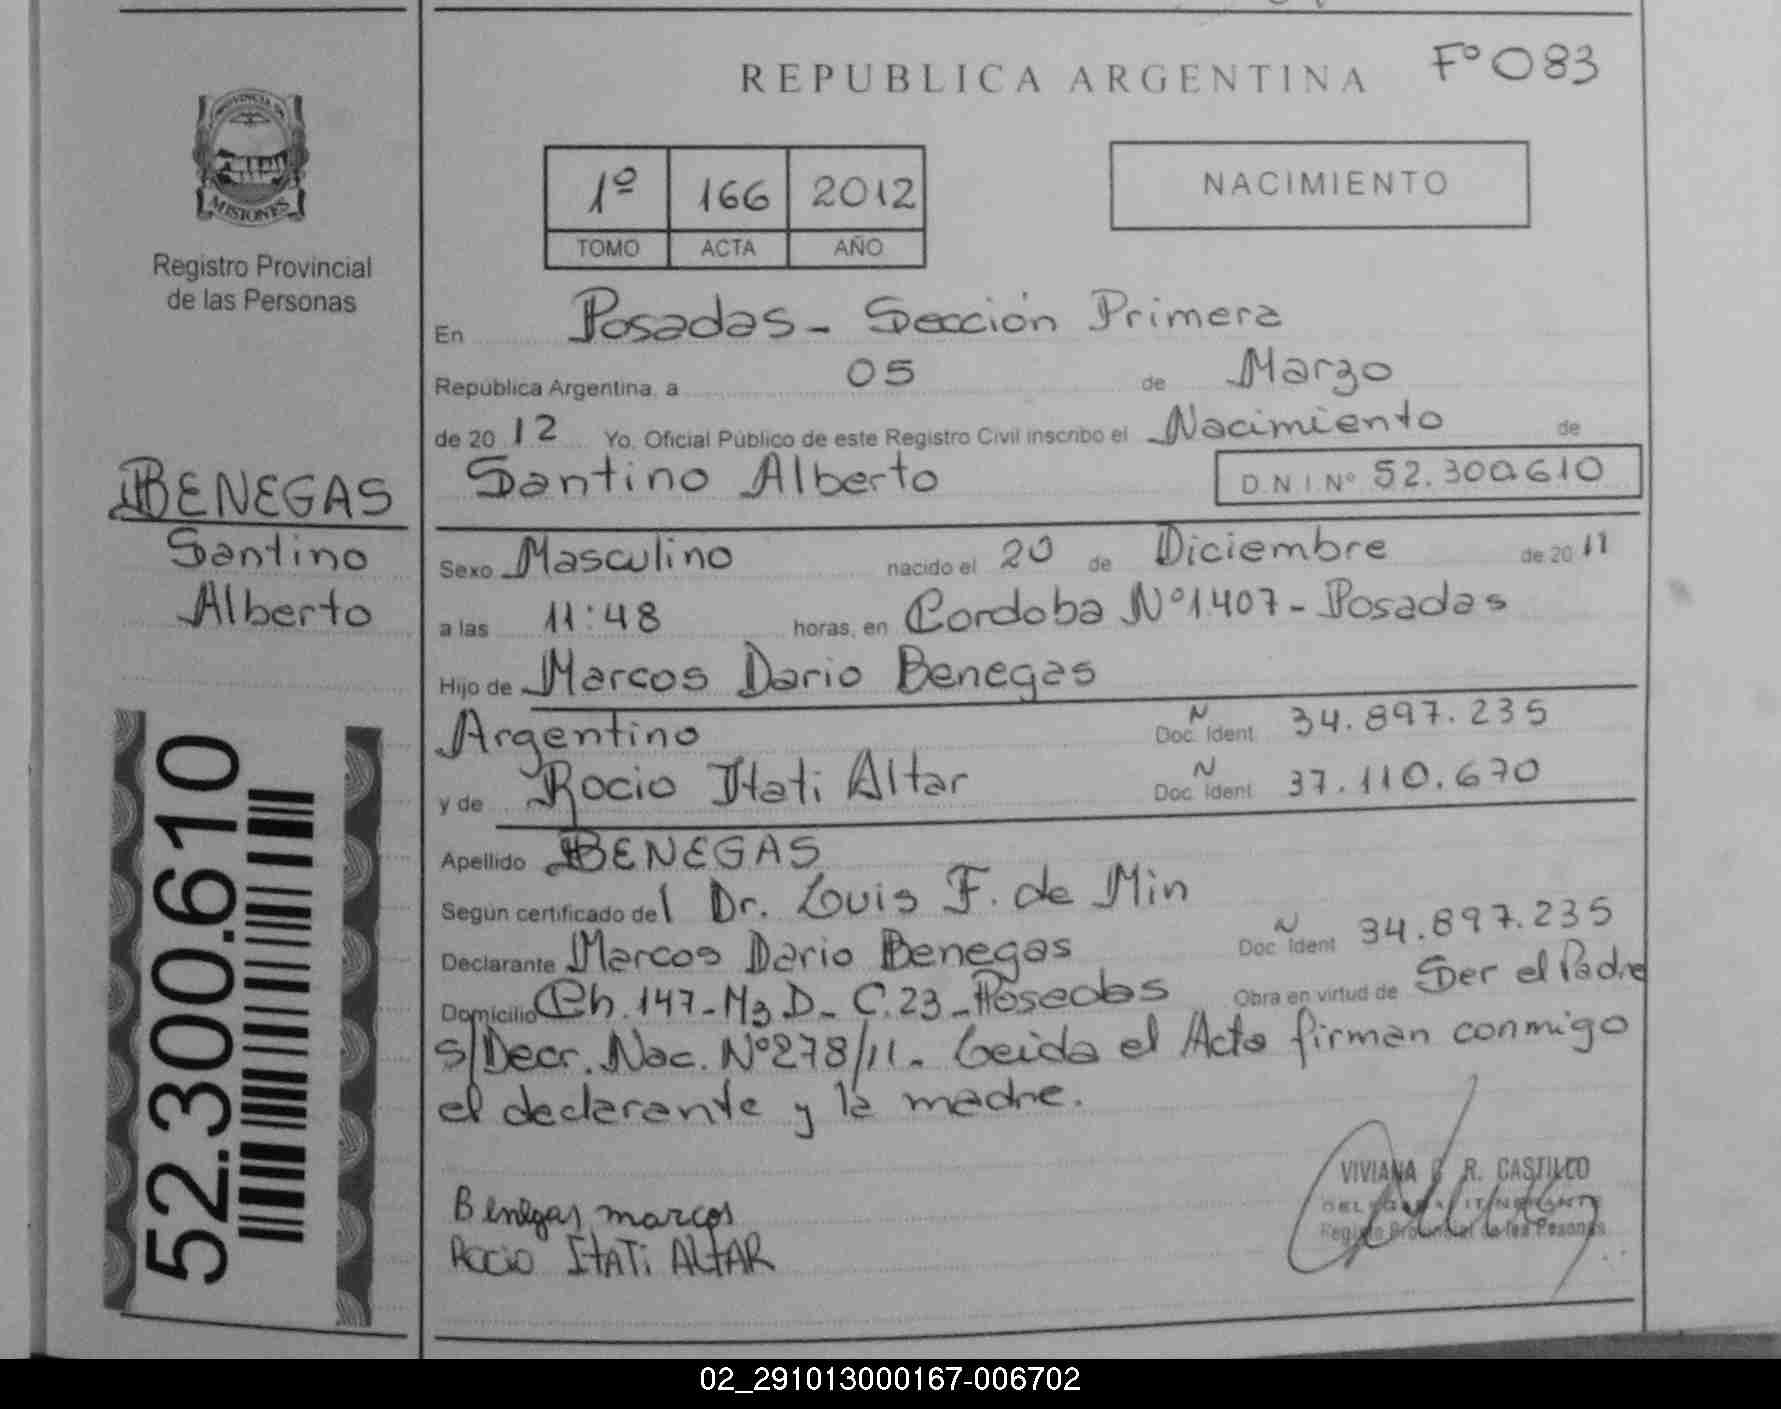 REPUBLICA ARGENTINA Fº 083
PROVINCIA DE
MISIONES
Registro Provincial
de las Personas
1º 166 2012
TOMO ACTA AÑO
NACIMIENTO
En Posadas - Sección Primera
República Argentina, a 05 de Marzo
de 20 12 Yo, Oficial Público de este Registro Civil inscribo el Nacimiento de
Santino Alberto D.N.I. Nº 52.300.610
BENEGAS
Santino
Alberto
52.300.610
Sexo Masculino nacido el 20 de Diciembre de 20 11
a las 11:48 horas, en Cordoba Nº 1407 - Posadas
Hijo de Marcos Dario Benegas
Argentino Doc. Ident. 34.897.235
y de Rocio Itati Altar Doc. Ident. 37.110.670
Apellido BENEGAS
Según certificado del Dr. Louis F. de Min
Declarante Marcos Dario Benegas Doc. Ident. 34.897.235
Domicilio Ch. 147 - Mz D - C. 23 - Posadas Obra en virtud de Ser el Padre
s/Decr. Nac. Nº 278/11. Leida el Acta firman conmigo
el declarante y la madre.
Benegas marcos
Rocio ITATI ALTAR
VIVIANA R. CASTILLO
DELEGADA ITINERANTE
Registro Provincial de las Pesonas
02_291013000167-006702